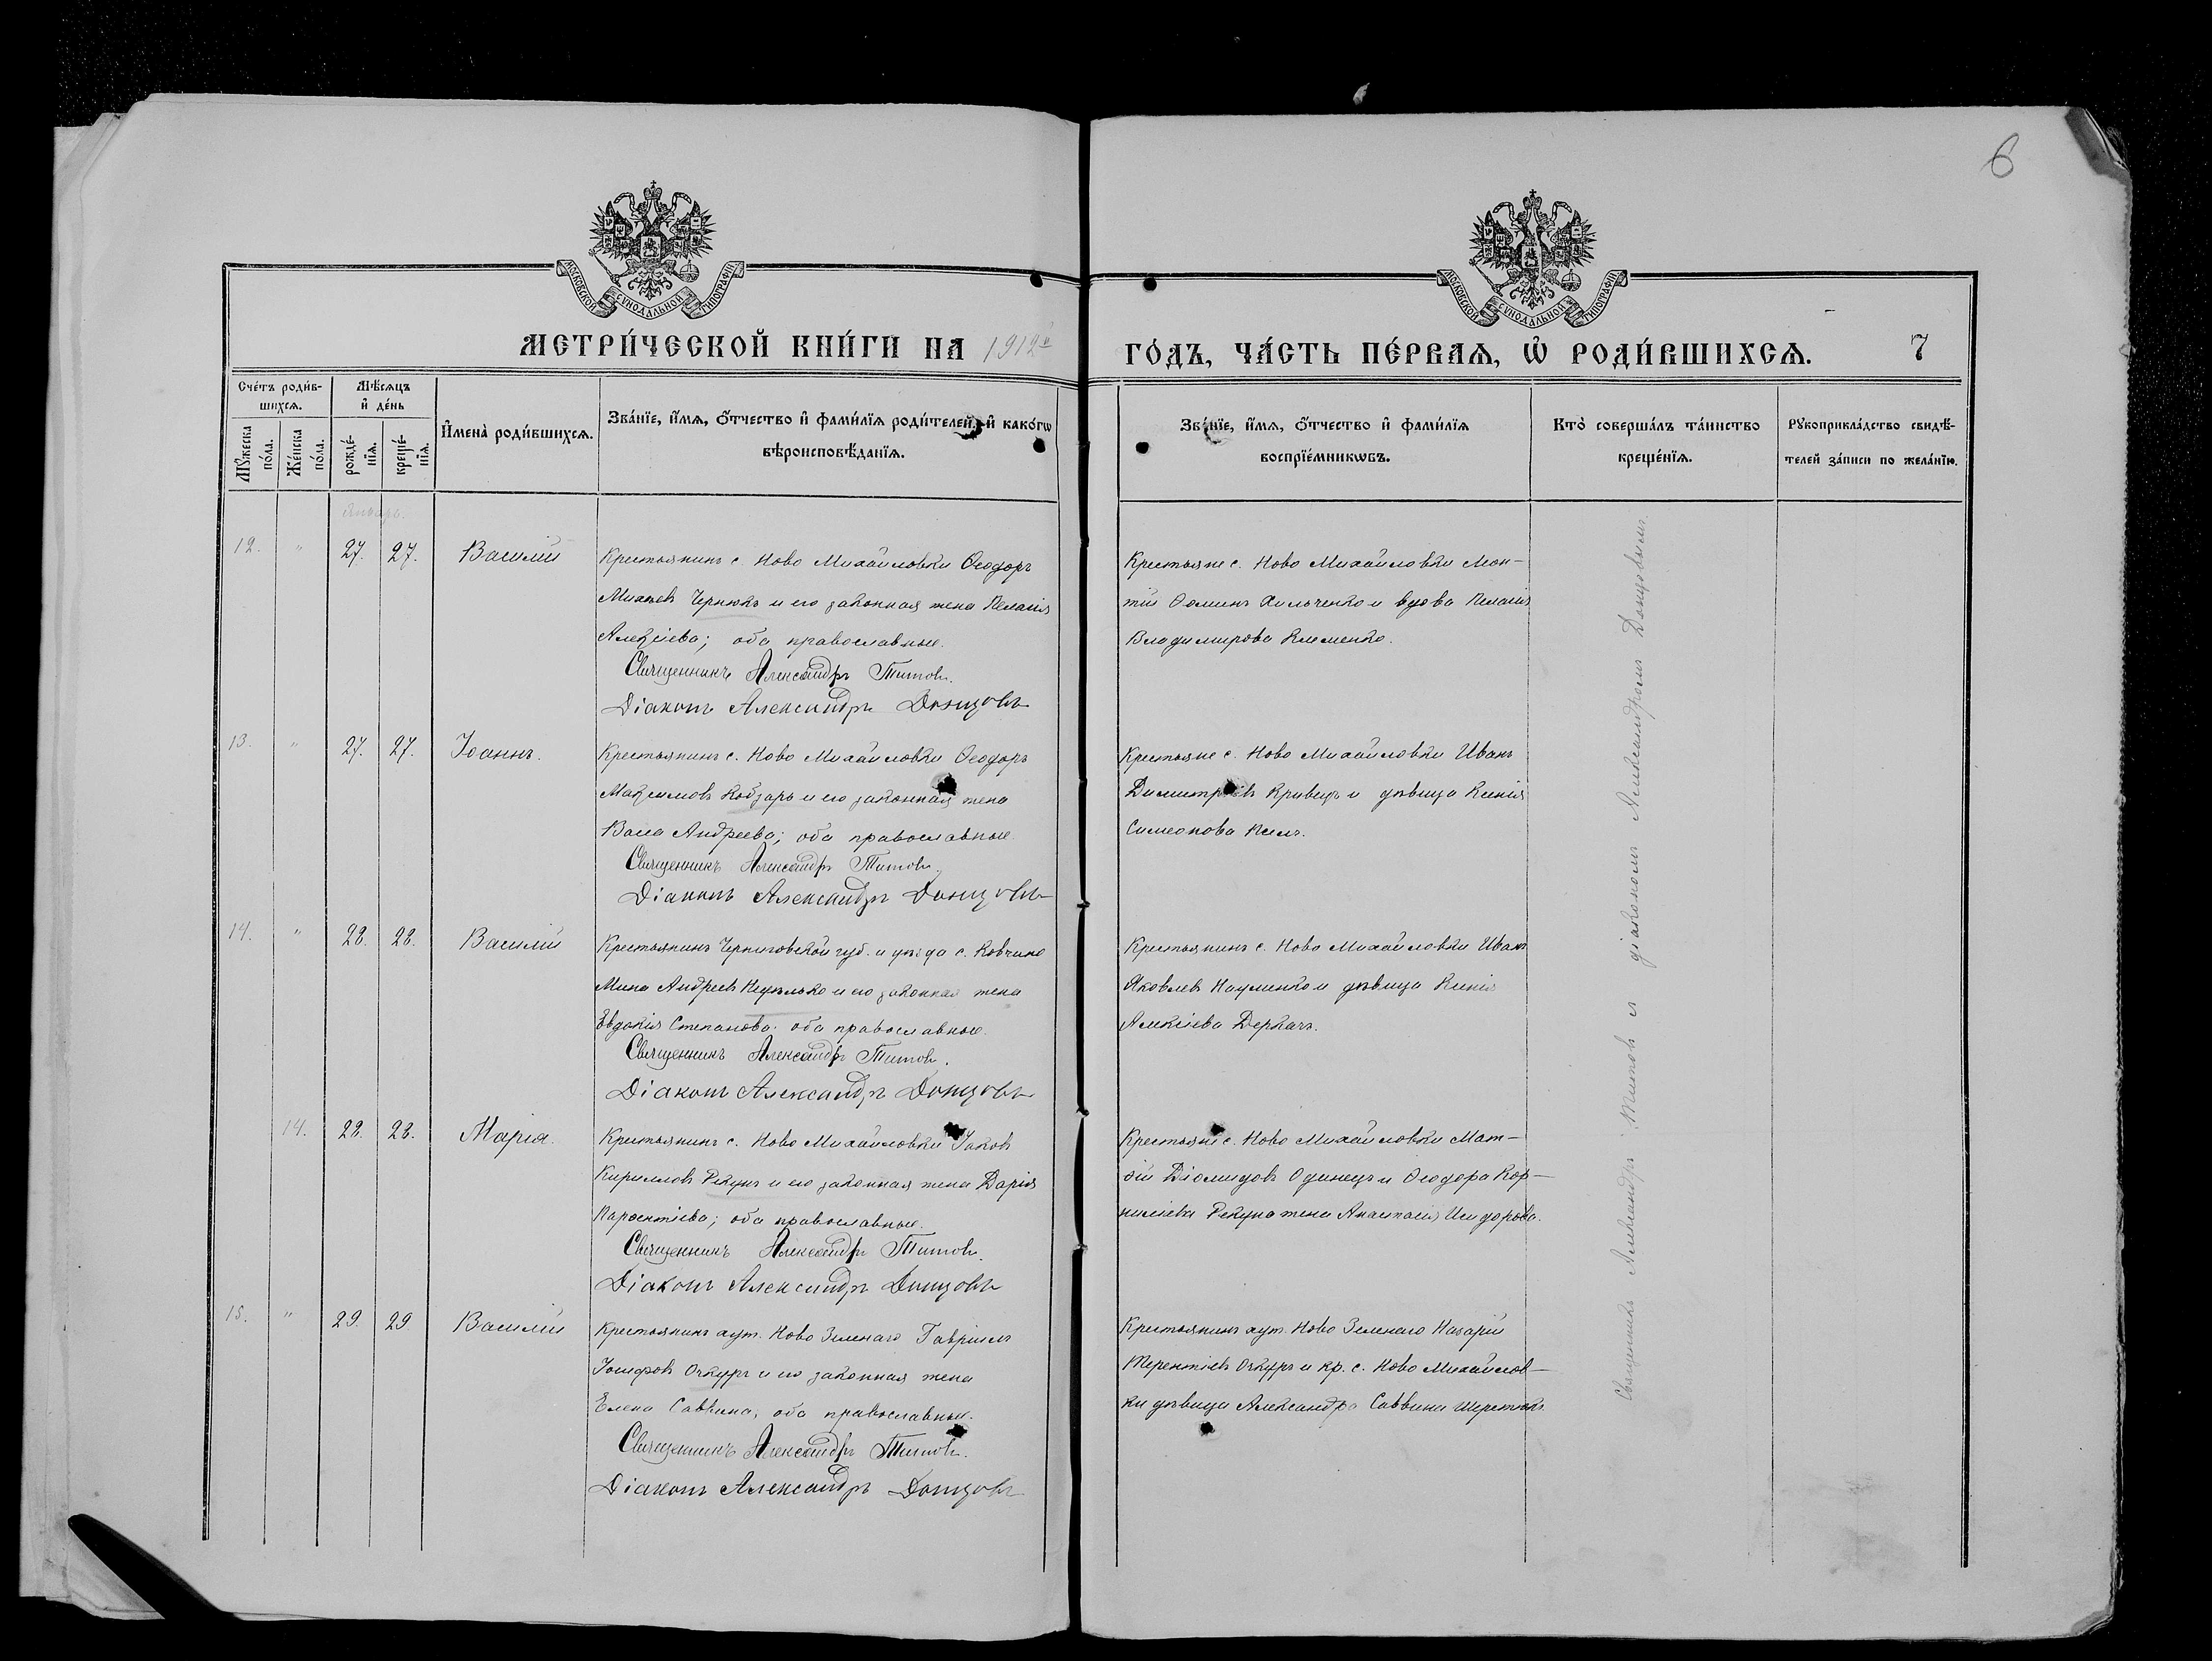 6
МОСКОВСКОЙ СѴНОДАЛЬНОЙ ТИПОГРАФІИ
МОСКОВСКОЙ СѴНОДАЛЬНОЙ ТИПОГРАФІИ
МЕТРИ́ЧЕСКОЙ КНИ́ГИ НА 1912й
ГО́ДЪ, ЧА́СТЬ ПЕ́РВАЯ, Ѽ РОДИ́ВШИХСѦ. 7
Сче́тъ роди́в-
шихсѧ.
Мꙋ́жеска по́ла.
Же́нска по́ла.
Мѣ́сѧцъ
и҆ де́нь
рожде́-
нїѧ.
креще́-
нїѧ.
И҆мена̀ роди́вшихсѧ.
Зва́нїе, и҆́мѧ, ѻ҆́тчество и҆ фами́лїѧ роди́телей, и҆ како́гѡ
вѣроисповѣ́данїѧ.
Зва́нїе, и҆́мѧ, ѻ҆́тчество и҆ фами́лїѧ
воспрїе́мникѡвъ.
Кто̀ соверша́лъ та́инство
креще́нїѧ.
Рꙋкоприкла́дство свидѣ́-
телей за́писи по жела́нїю.
Январь.
12. " 27. 27. Василій
Крестьянинъ с. Ново Михайловки Ѳеодоръ
Михеевъ Чернюкъ и его законная жена Пелагія
Алексіева; оба православные.
Священникъ Александръ Титовъ.
Діаконъ Александръ Донцовъ
Крестьяне с. Ново Михайловки Мон-
тій Ѳоминъ Хильченко и вдова Пелагія
Владимирова Клименко.
13. " 27. 27. Іоаннъ.
Крестьянинъ с. Ново Михайловки Ѳеодоръ
Максимовъ Кобзарь и его законная жена
Васса Андреева; оба православные.
Священникъ Александръ Титовъ.
Діаконъ Александръ Донцовъ
Крестьяне с. Ново Михайловки Иванъ
Димитріевъ Кривецъ и дѣвица Ксенія
Симеонова
14. " 28. 28. Василій
Крестьянинъ Черниговской губ. и уѣзда с. Ковчина
Мина Андреевъ Недѣлько и его законная жена
Евдокія Степанова; оба православные.
Священникъ Александръ Титовъ.
Діаконъ Александръ Донцовъ
Крестьянинъ с. Ново Михайловки Иванъ
Яковлевъ Науменко и дѣвица Ксенія
Алексіева Деркачъ.
14. 28. 28. Марія.
Крестьянинъ с. Ново Михайловки Іаковъ
Кирилловъ Рекунъ и его законная жена Дарія
Парѳентіева; оба православные.
Священникъ Александръ Титовъ.
Діаконъ Александръ Донцовъ
Крестьяне с. Ново Михайловки Мат-
ѳій Діомидовъ Одинецъ и Ѳеодора Кор-
ниліева Рекуна жена Анастасія Исидорова.
15. " 29. 29. Василій
Крестьянинъ хут. Ново Зеленаго Гавріилъ
Іосифовъ Очкуръ и его законная жена
Елена Саввина; оба православные.
Священникъ Александръ Титовъ.
Діаконъ Александръ Донцовъ
Крестьянинъ хут. Ново Зеленаго Назарій
Терентіевъ Очкуръ и кр. с. Ново Михайлов-
ки дѣвица Александра Саввина Шеретюкъ.
Священникъ Александръ Титовъ и діакономъ Александромъ Донцовымъ.